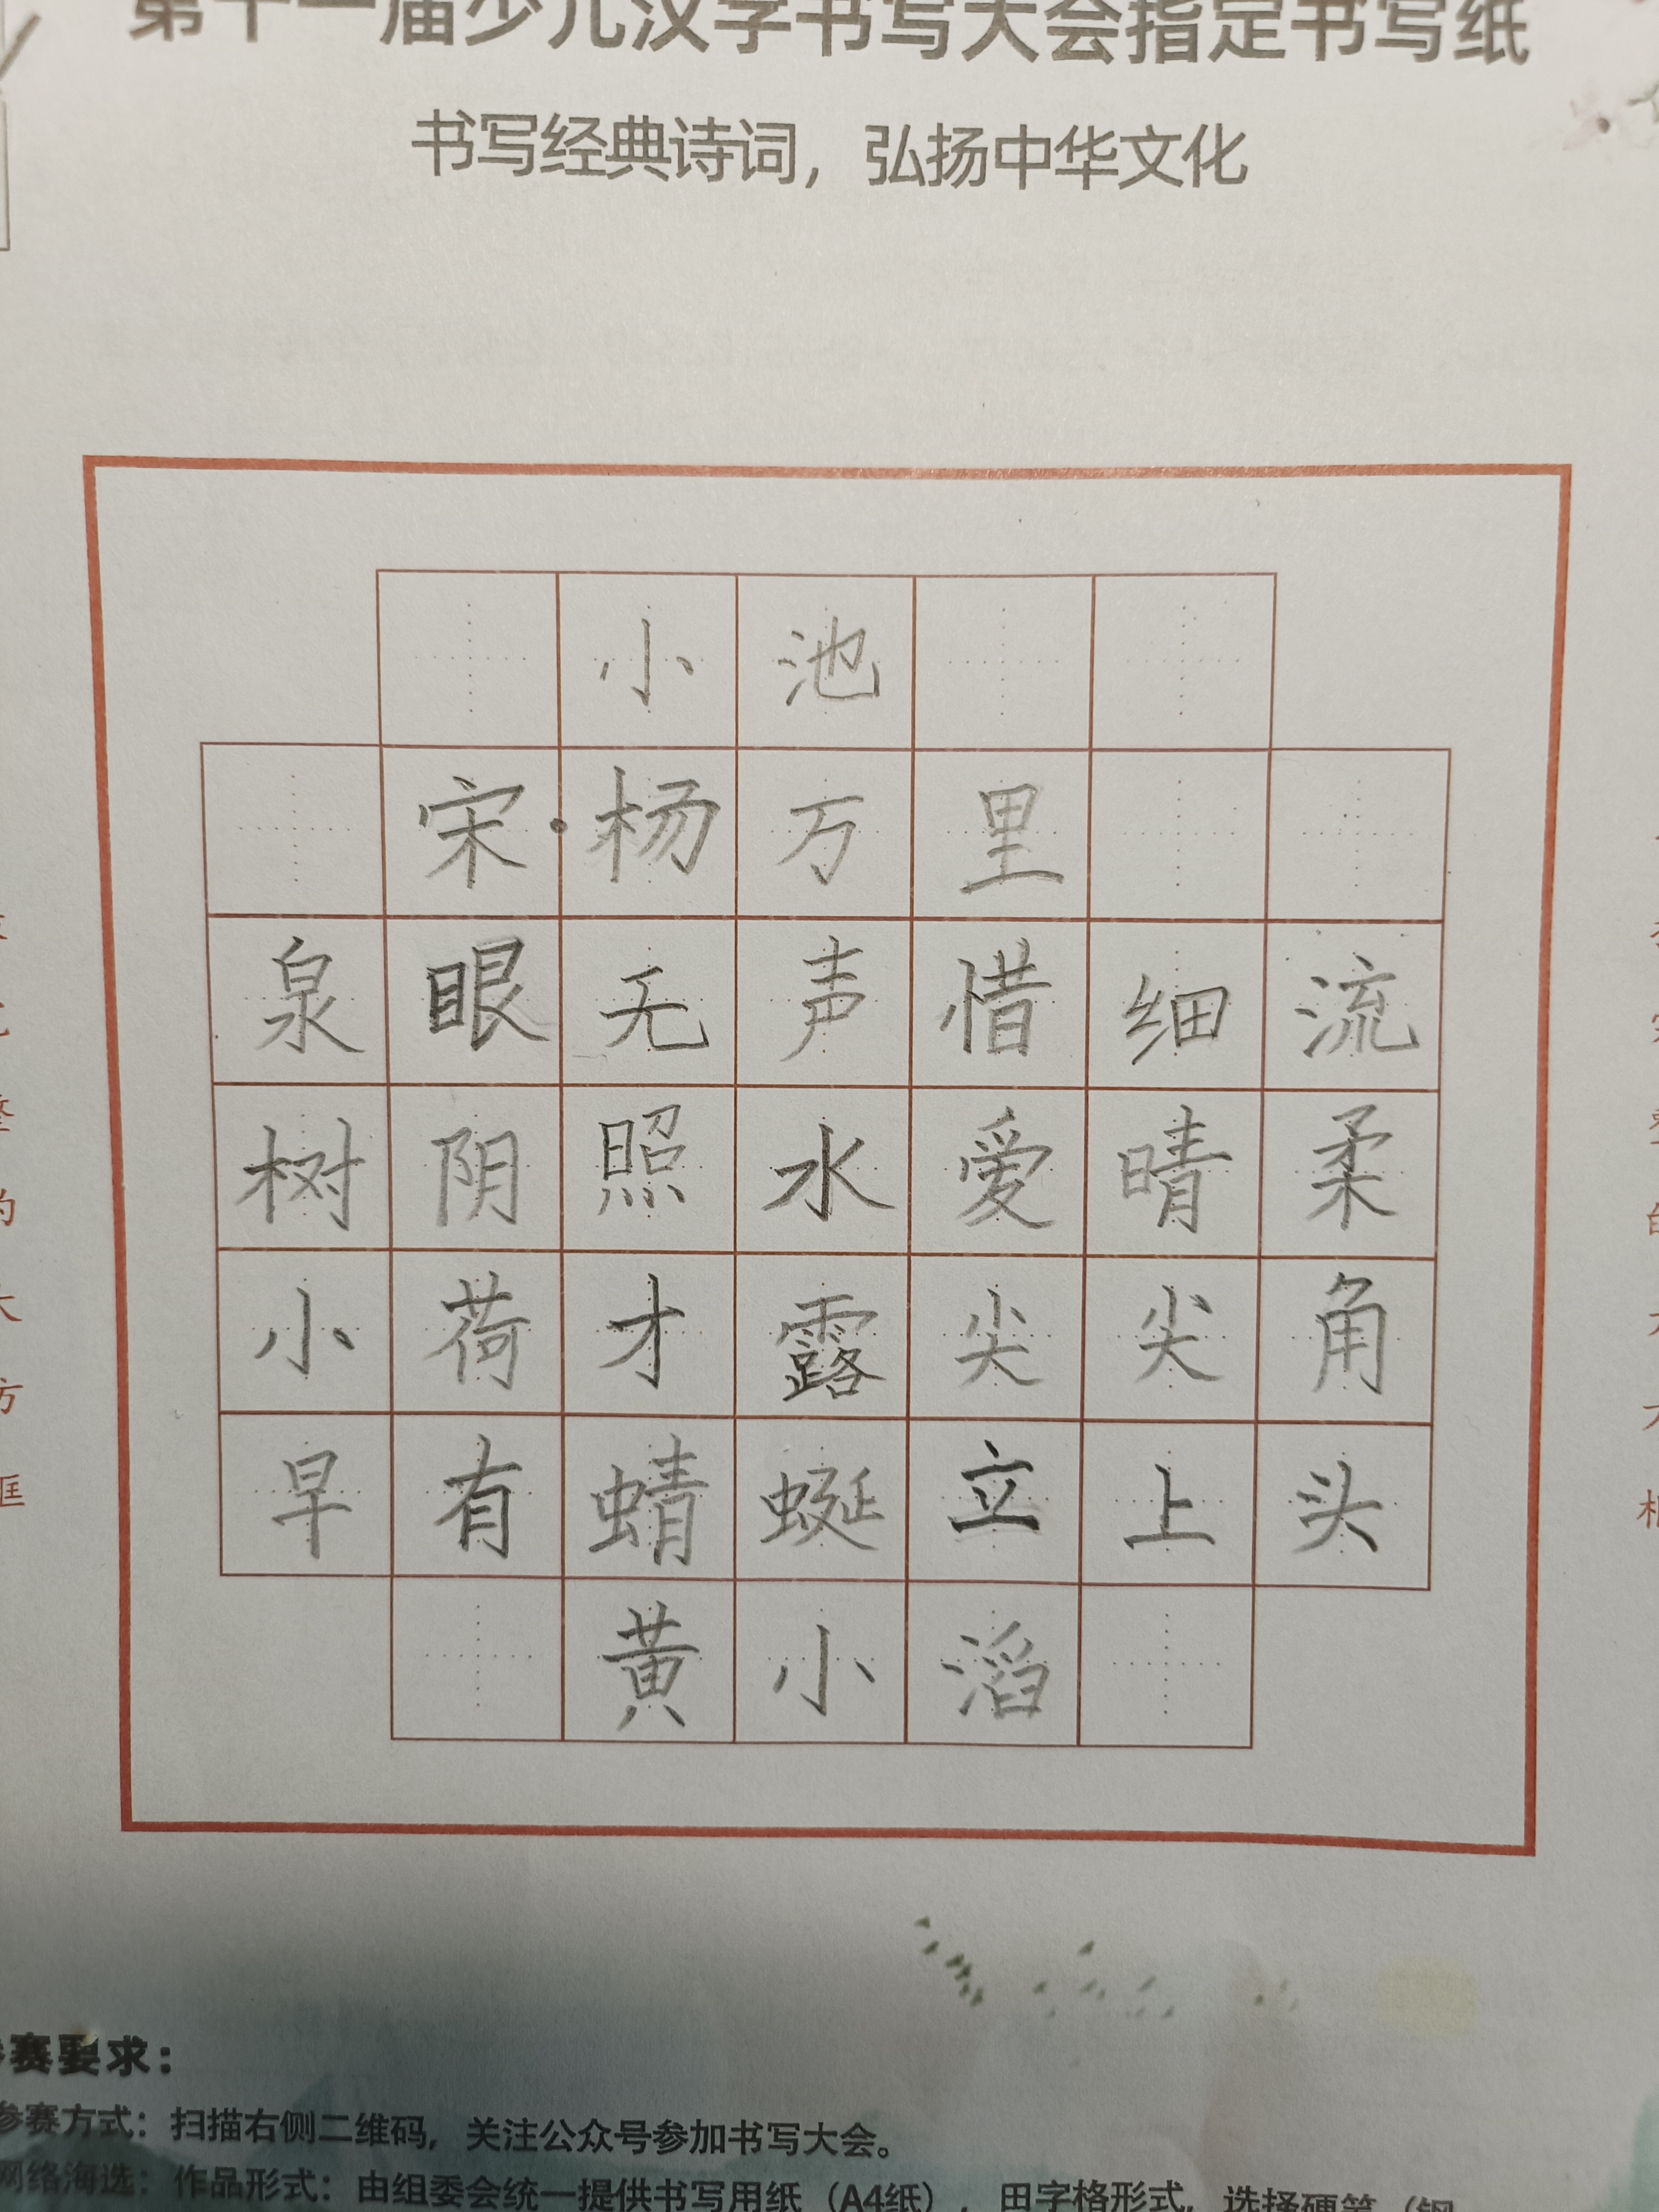 第十一届少儿汉字书写大会指定书写纸
书写经典诗词，弘扬中华文化
小池
宋·杨万里
泉眼无声惜细流
树阴照水爱晴柔
小荷才露尖尖角
早有蜻蜓立上头
黄小滔
参赛要求：
参赛方式：扫描右侧二维码，关注公众号参加书写大会。
网络海选：作品形式：由组委会统一提供书写用纸（A4纸），田字格形式，选择硬笔（钢